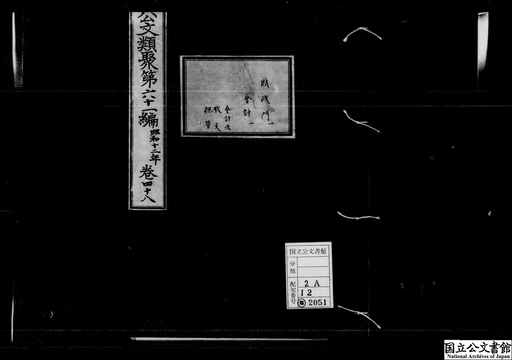 公文類聚第六十一編昭和十二年巻四十八
財政門一
会計一
会計法
国立公文書館
分類
配架番号
2A
12
2051
国立公文書館
National Archives of Japan